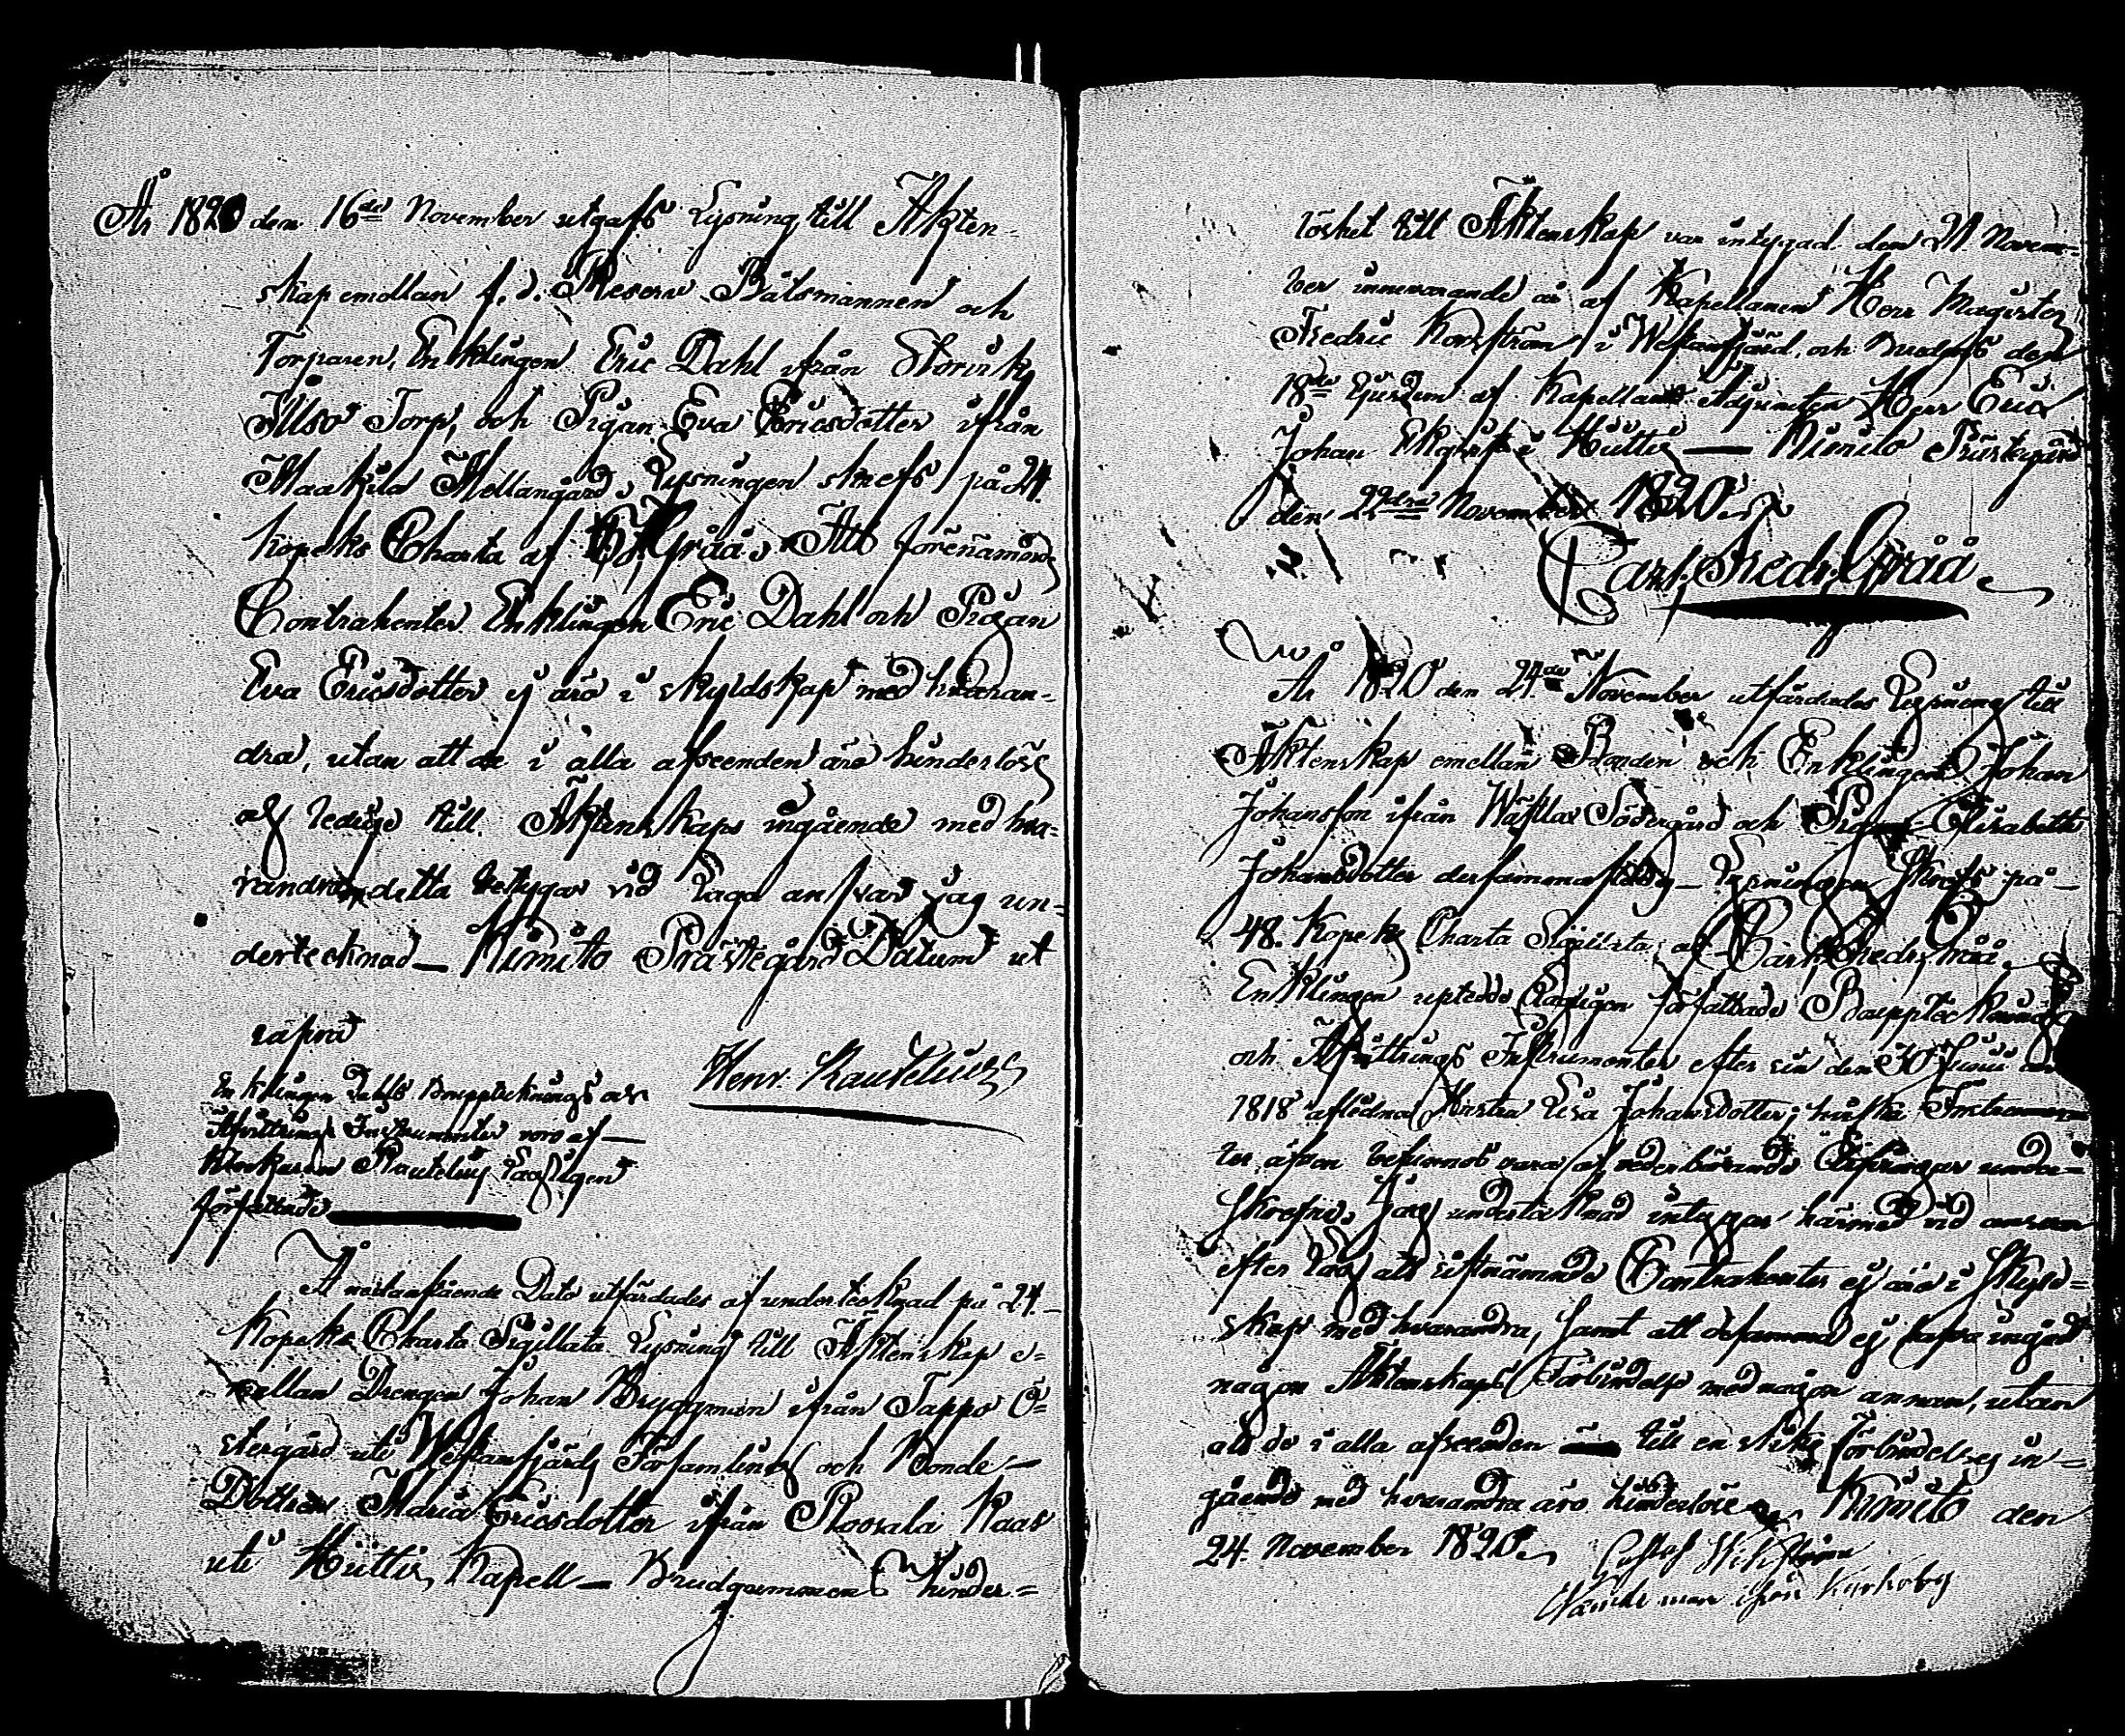 År 1820 den 16de November utgafs Lysning till Äkten-
skap emellan f. d. Reserv Båtsmannen och
Torparen, Enklingen Eric Dahl ifrån Storvik
Torp, och Pigan Eva Ericsdotter ifrån
Maakila Mellangård, Lysningen skrefs på 24
kopeks Charta af Gråå. Att förenämnde
Contrahenter Enklingen Eric Dahl och Pigan
Eva Ericsdotter ej äro i skyldskap med hvaran-
dra, utan att de i alla afseenden äro hinderlöse
och ledige till Äktenskaps ingående med hva-
randra, detta betygar vid Laga ansvar jag un-
dertecknad — Kimito Prästegård Datum ut
supra
Henr. Rautelius
Enklingen Dahls Bouppteknings och
Afvittrings Instrumenter voro af
Klockaren Rautelius Lagligen
författade
Å nedanstående Dato utfärdades af undertecknad på 24
Kopeks Charta Sigillata Lysning till Äktenskap e=
mellan Drengen Johan Bryggman ifrån Tappo Ö=
stergård uti Westanfjärds Församling och Bonde-
Dottren Maria Ericsdotter ifrån Rosala
uti Hittis Kapell — Brudgummens hinder=
löshet till Äktenskap var intygad den 21 Novem-
ber innevarande år af Kapellanen Herr Magister
Fredric i Westanfjärd, och Brudens den
18de ejusdem af Kapellans Adjuncten Herr Eric
Johan Ekqvist i Hittis — Kimito Prästegård
den 22dra November 1820.
Carl Fredr. Gråå.
År 1820 den 24de November utfärdades Lysning till
Äktenskap emellan Bonden och Enklingen Johan
Johansson ifrån Södergård och Pigan Elisabeth
Johansdotter dersammastädes — Lysningen skrefs på
48. Kopeks Charta Sigillata af Carl Fredr. Gråå.
Enklingen uptedde Lagligen författade Bouppteckning
och Afvittrings Instrumenter efter sin den 30 Junii
1818 aflidna Hustru Lisa Johansdotter; hvilka Instrumen
ter äfven befunnos vara af vederbörande Arfvingar under=
skrefne. Jag undertecknad intygar härmed vid ansvar
efter Lag att ofvannämnde Contrahenter ej äro i Skyld=
skap med hvarandra, samt att desamma ej hafva ingådt
någon Äktenskaps Förbindelse med någon annan, utan
att de i alla afseenden till en slik Förbindelses in=
gående med hvarandra äro hinderlöse Kimito den
24. November 1820.
Gustaf Wikström
Nämdeman ifrån Kyrkoby